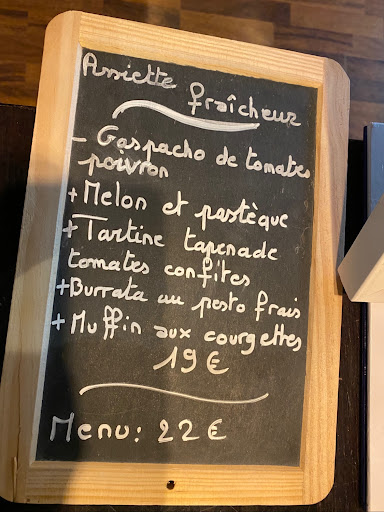 Assiette fraîcheur
- Gaspacho de tomates
poivron
+ Melon et pastèque
+ Tartine tapenade
tomates confites
+ Burrata au pesto frais
+ Muffin aux courgettes
19 €
Menu : 22 €